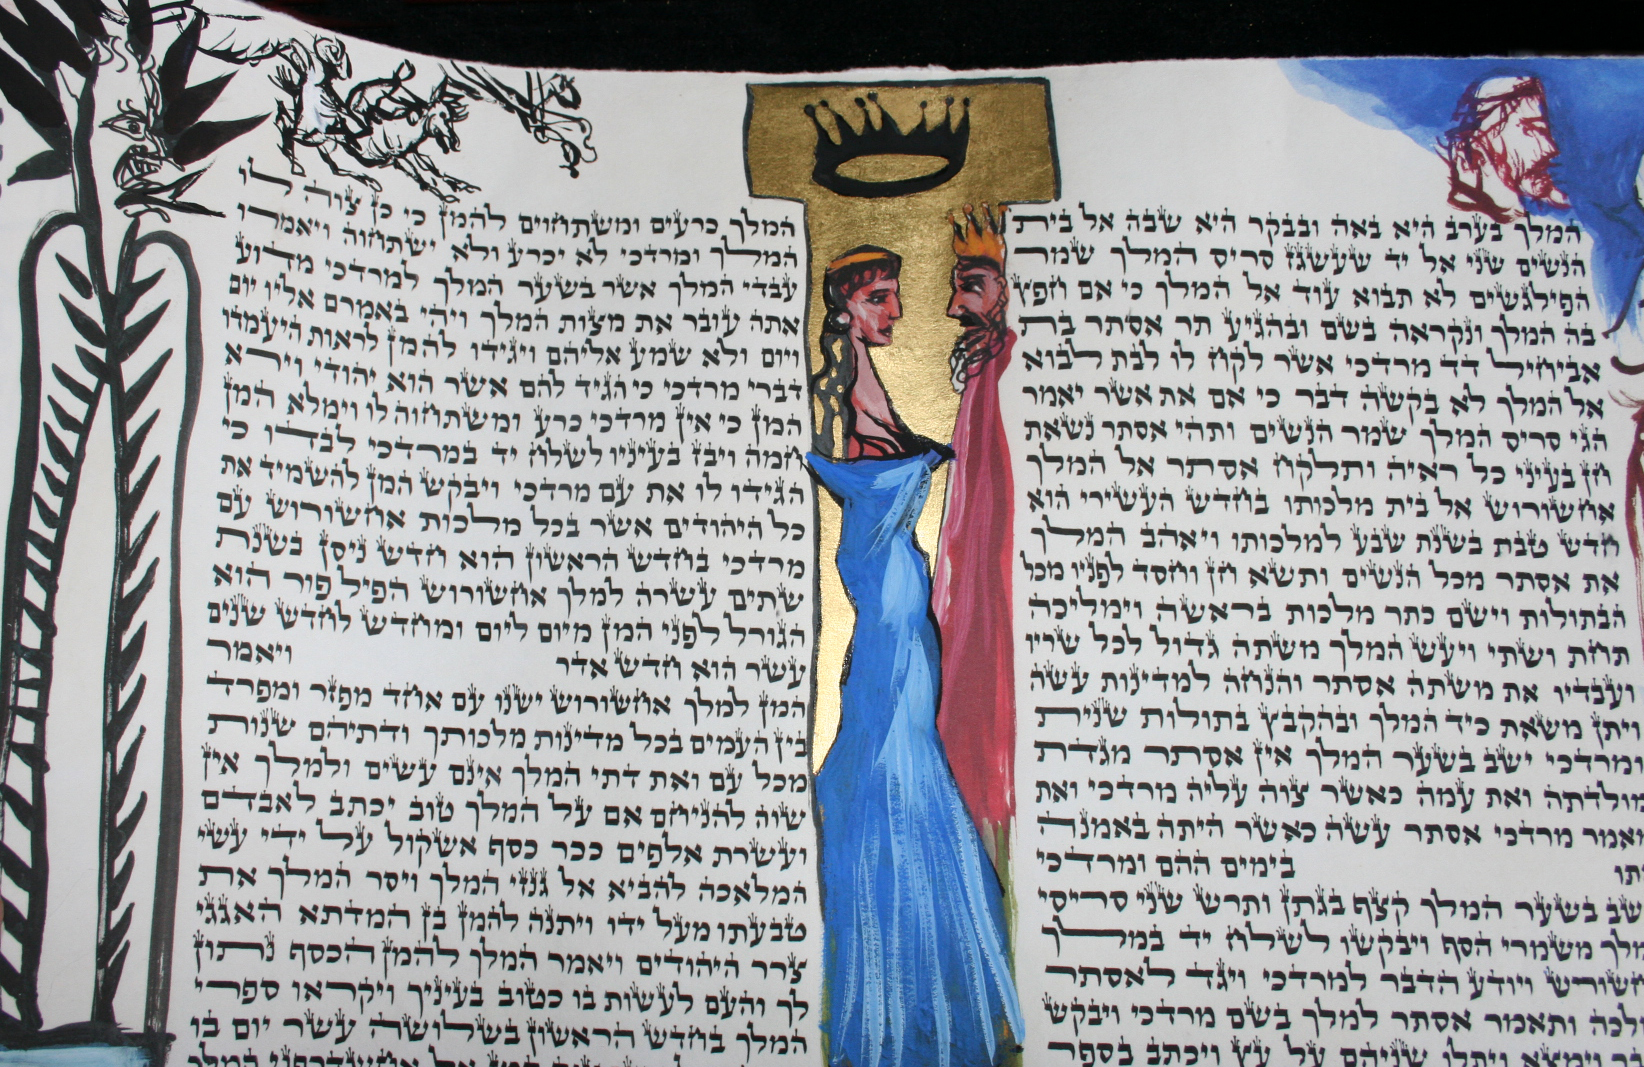 המלך בערב היא באה ובבקר היא שבה אל בית
הנשים שני אל יד שעשגז סריס המלך שמר
הפילגשים לא תבוא עוד אל המלך כי אם חפץ
בה המלך ונקראה בשם ובהגיע תר אסתר בת
אביחיל דד מרדכי אשר לקח לו לבת לבוא
אל המלך לא בקשה דבר כי אם את אשר יאמר
הגי סריס המלך שמר הנשים ותהי אסתר נשאת
חן בעיני כל ראיה ותלקח אסתר אל המלך
אחשורוש אל בית מלכותו בחדש העשירי הוא
חדש טבת בשנת שבע למלכותו ויאהב המלך
את אסתר מכל הנשים ותשא חן וחסד לפניו מכל
הבתולות וישם כתר מלכות בראשה וימליכה
תחת ושתי ויעש המלך משתה גדול לכל שריו
ועבדיו את משתה אסתר והנחה למדינות עשה
ויתן משאת כיד המלך ובהקבץ בתולות שנית
ומרדכי ישב בשער המלך אין אסתר מגדת
מולדתה ואת עמה כאשר צוה עליה מרדכי ואת
מאמר מרדכי אסתר עשה כאשר היתה באמנה
בימים ההם ומרדכי
ישב בשער המלך קצף בגתן ותרש שני סריסי
המלך משמרי הסף ויבקשו לשלח יד במלך
אחשורש ויודע הדבר למרדכי ויגד לאסתר
המלכה ותאמר אסתר למלך בשם מרדכי ויבקש
הדבר וימצא ויתלו שניהם על עץ ויכתב בספר
המלך כרעים ומשתחוים להמן כי כן צוה לו
המלך ומרדכי לא יכרע ולא ישתחוה ויאמרו
עבדי המלך אשר בשער המלך למרדכי מדוע
אתה עובר את מצות המלך ויהי באמרם אליו יום
ויום ולא שמע אליהם ויגידו להמן לראות היעמדו
דברי מרדכי כי הגיד להם אשר הוא יהודי וירא
המן כי אין מרדכי כרע ומשתחוה לו וימלא המן
חמה ויבז בעיניו לשלח יד במרדכי לבדו כי
הגידו לו את עם מרדכי ויבקש המן להשמיד את
כל היהודים אשר בכל מלכות אחשורוש עם
מרדכי בחדש הראשון הוא חדש ניסן בשנת
שתים עשרה למלך אחשורוש הפיל פור הוא
הגורל לפני המן מיום ליום ומחדש לחדש שנים
עשר הוא חדש אדר ויאמר
המן למלך אחשורוש ישנו עם אחד מפזר ומפרד
בין העמים בכל מדינות מלכותך ודתיהם שנות
מכל עם ואת דתי המלך אינם עשים ולמלך אין
שוה להניחם אם על המלך טוב יכתב לאבדם
ועשרת אלפים ככר כסף אשקול על ידי עשי
המלאכה להביא אל גנזי המלך ויסר המלך את
טבעתו מעל ידו ויתנה להמן בן המדתא האגגי
צרר היהודים ויאמר המלך להמן הכסף נתון
לך והעם לעשות בו כטוב בעיניך ויקראו ספרי
המלך בחדש הראשון בשלושה עשר יום בו